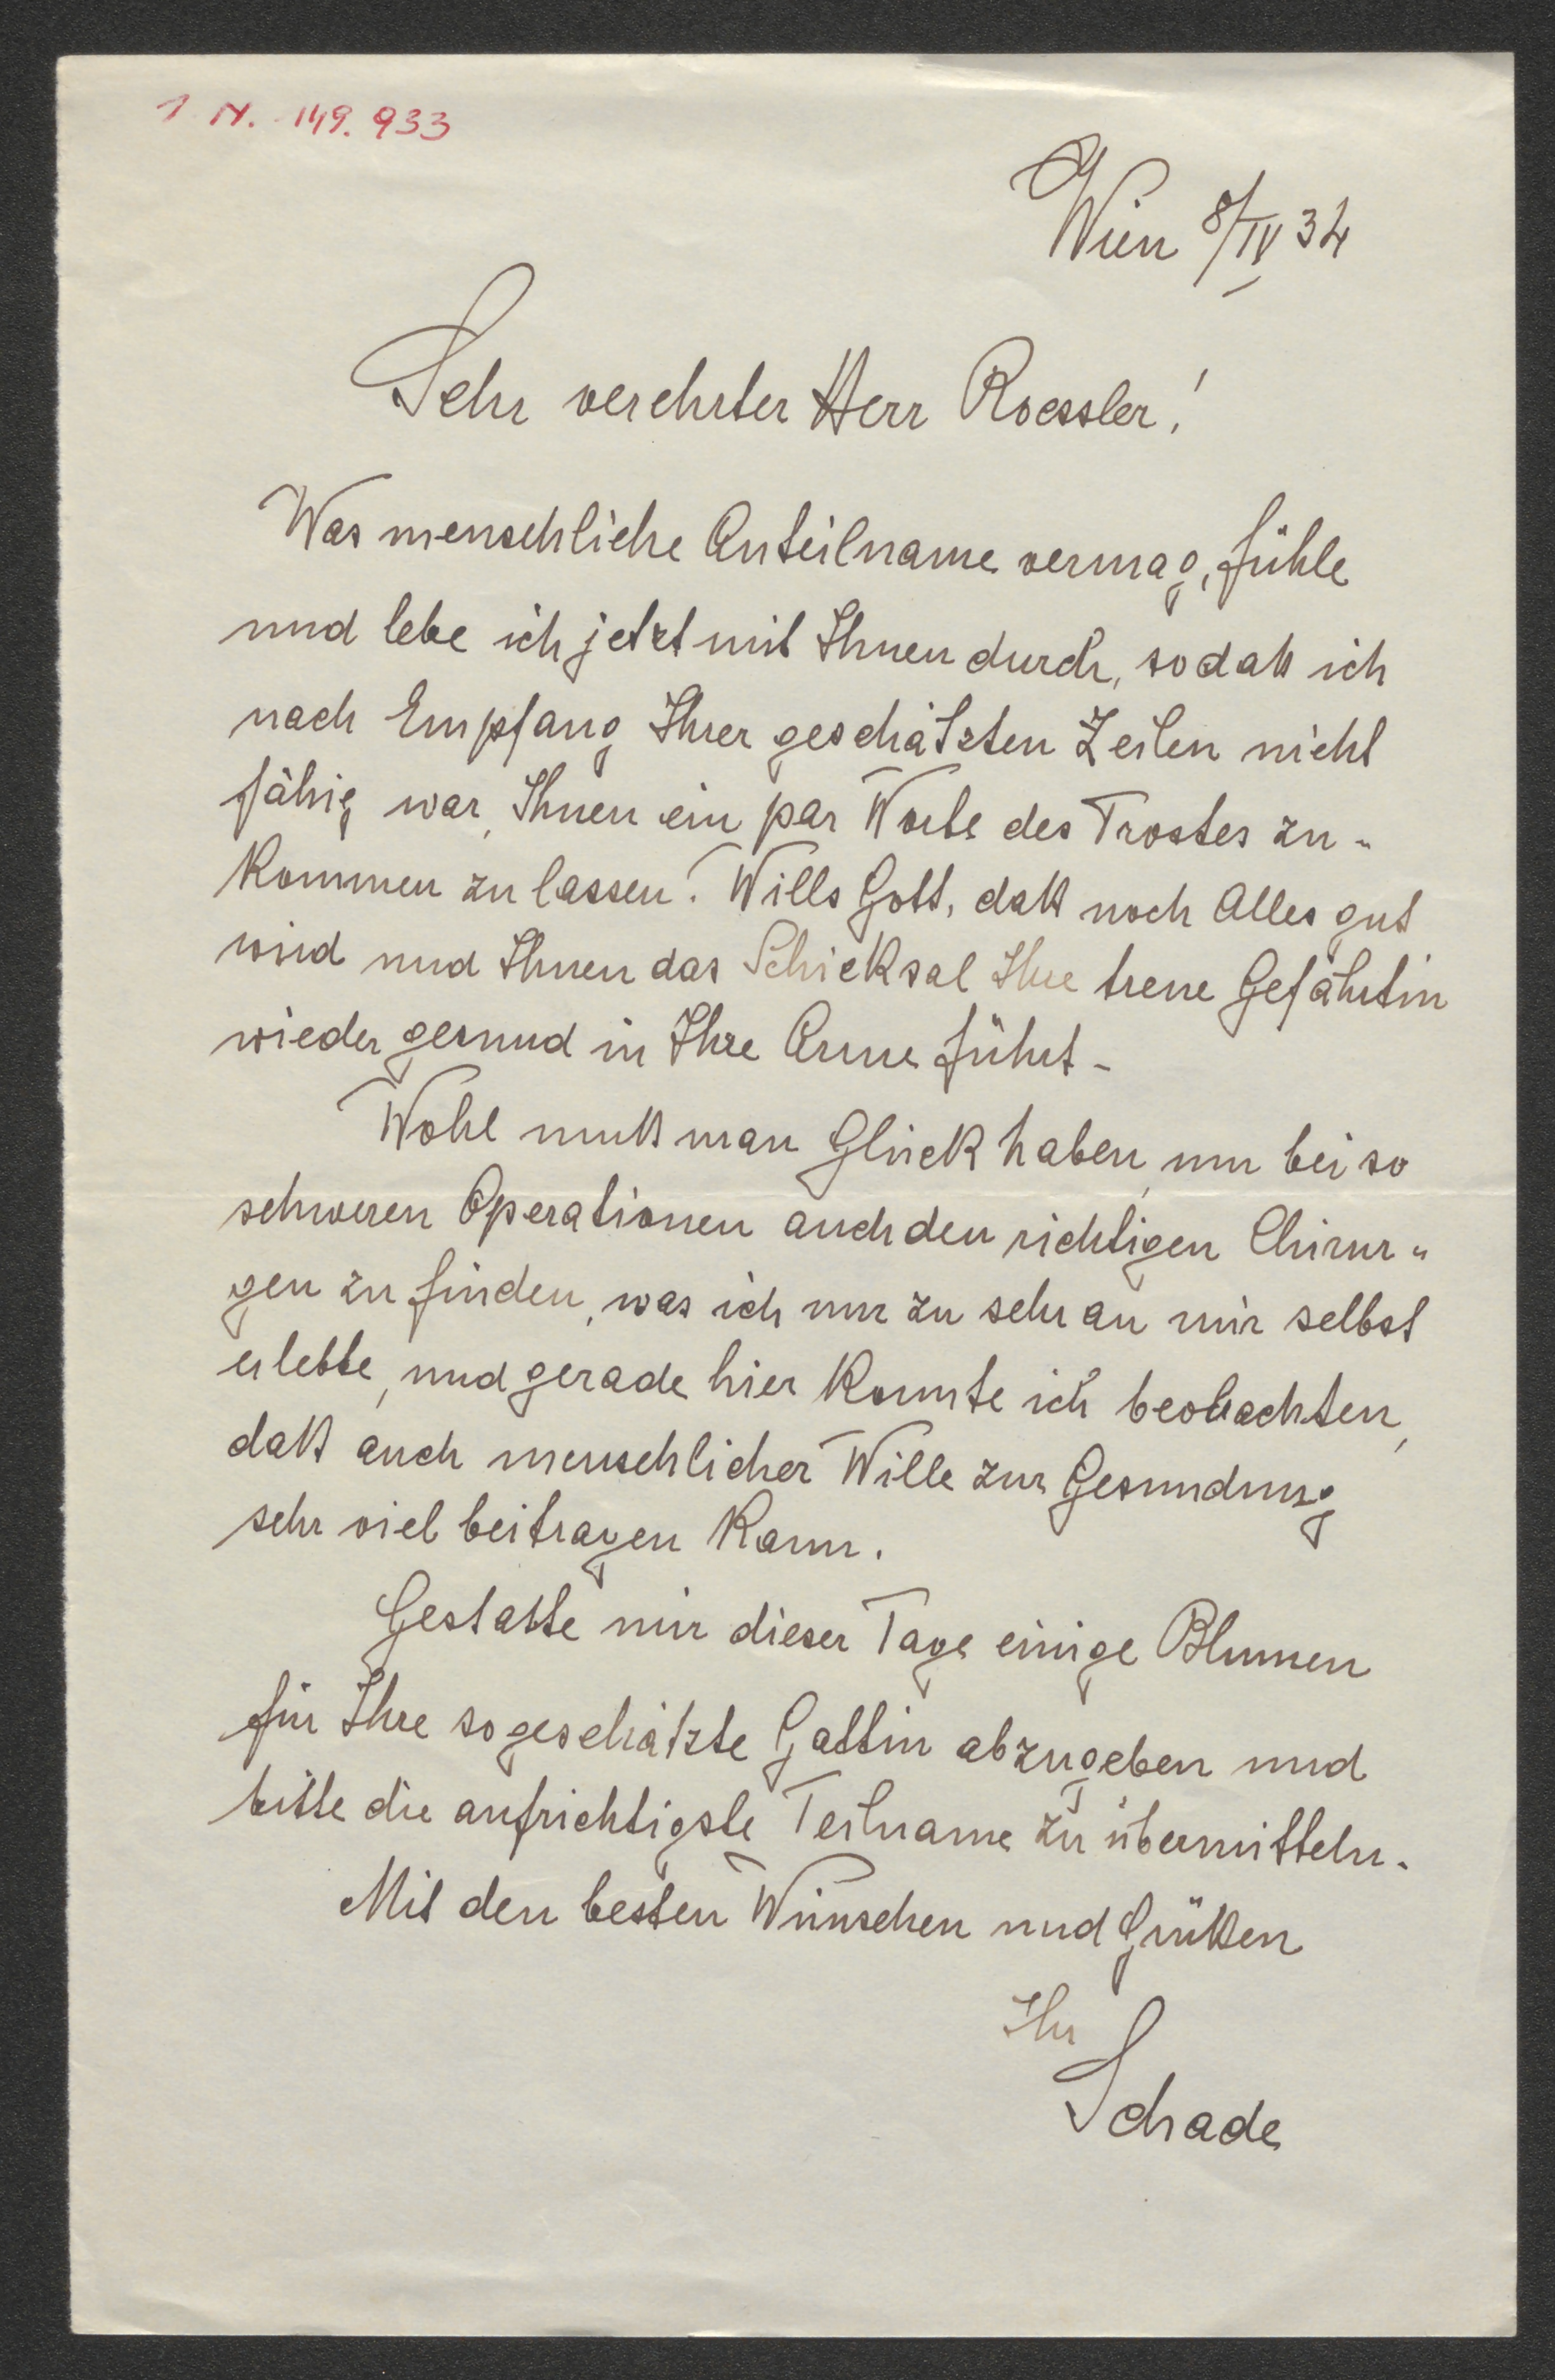 I. N. 149.933
Wien 8/IV 34
Sehr verehrter Herr Roessler!
Was menschliche Anteilname vermag, fühle
und lebe ich jetzt mit Ihnen durch, sodaß ich
nach Empfang Ihrer geschätzten Zeilen nicht
fähig war, Ihnen ein par Worte des Trostes zu-
kommen zu lassen. Wills Gott, daß noch Alles gut
wird und Ihnen das Schicksal Ihre treue Gefährtin
wieder gesund in Ihre Arme führt -
Wohl muß man Glück haben, um bei so
schweren Operationen auch den richtigen Chirur-
gen zu finden, was ich nur zu sehr an mir selbst
erlebte, und gerade hier konnte ich beobachten,
daß auch menschlicher Wille zur Gesundung
sehr viel beitragen kann.
Gestatte mir dieser Tage einige Blumen
für Ihre so geschätzte Gattin abzugeben und
bitte die aufrichtigste Teilname zu übermitteln.
Mit den besten Wünschen und Grüßen
Ihr
Schade